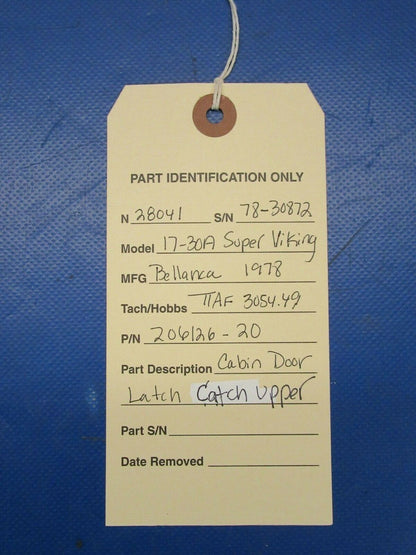 PART IDENTIFICATION ONLY
N 28041 S/N 78-30872
Model 17-30A Super Viking
MFG Bellanca 1978
Tach/Hobbs TTAF 3054.49
P/N 206126-20
Part Description Cabin Door
Latch Catch Upper
Part S/N
Date Removed